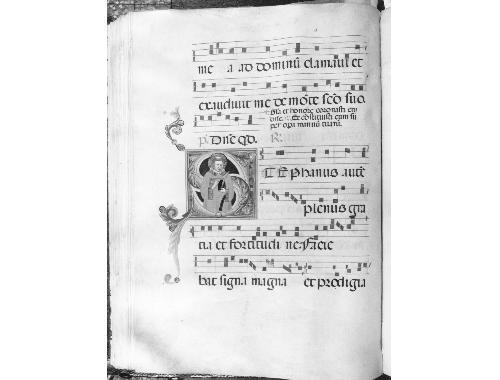 me a ad dominū clamaui et
exaudiuit me de mōte sc̄o suo.
Gl̄ia et honore coronasti eū
dn̄e. Et constituisti eum su
per opa manuū tuarū.
p̄. Dn̄e qd.
STEPhanus autē
plenus gra
tia et fortitudi ne. Facie
bat signa magna et prodigia